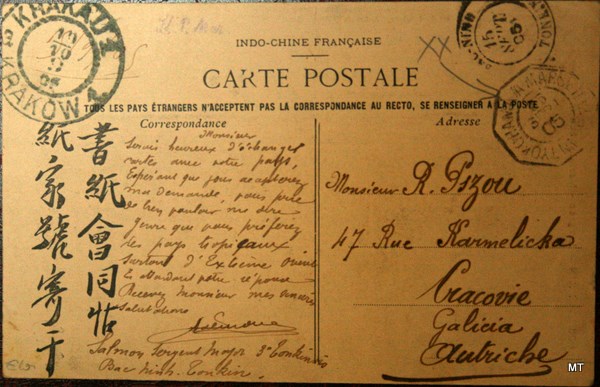 INDO-CHINE FRANÇAISE
CARTE POSTALE
TOUS LES PAYS ÉTRANGERS N'ACCEPTENT PAS LA CORRESPONDANCE AU RECTO, SE RENSEIGNER A LA POSTE
Correspondance
Adresse
KRAKAU
KRAKÓW
BAC-NINH
TONKIN
XX
Monsieur
Serais heureux d'échanger
cartes avec votre pays,
Espérant que vous accepterez
ma demande, vous prie
de bien vouloir me dire
genre que vous préférez
les pays tropicaux
Surtout d'Extrême Orient
En attendant votre réponse
Recevez Monsieur mes
Salutations
Salmon Sergent Major 3e Tonkinois
Bac Ninh Tonkin
書紙會同帖
紙家號寄干
Monsieur R. Pszou
47 Rue Karmelicka
Cracovie
Galicia
Autriche
MT